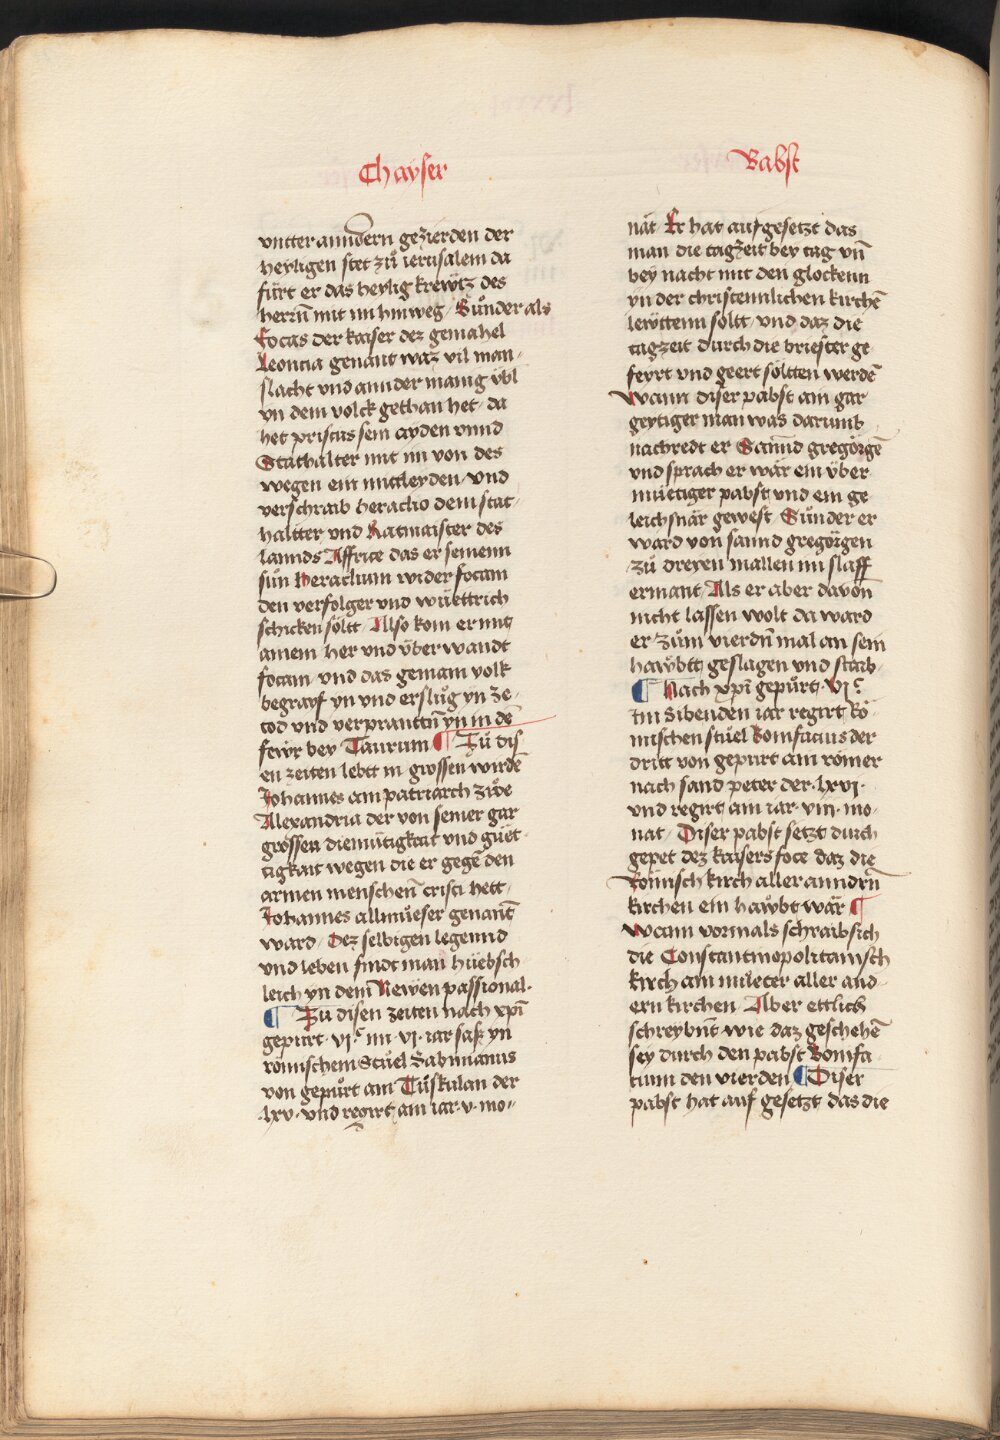 Chayser
vntter anndern gezierden der
heyligen stet zů ierusalem da
fürt er das heylig krewtz des
herrn̄ mit im hinweg / Sůnder als
Focas der kaiser dez gemahel
Leoncia genant waz vil man /
slacht vnd annder manig v̈bl
yn dem volck gethan het / da
het priscus sein ayden vnnd
Stathalter mit im von des
wegen ein mitleyden / vnd
verschraib heraclio dem stat /
haltter vnd Ratmaister des
lannds Affrice das er seinenn
sůn Heraclium wider focam
den verfolger vnd wüettrich
schicken söltt / Also kom er mit
ainem her vnd v̈berwandt
focam / vnd das gemain volk
begrayf yn vnd erslůg yn ze /
tod vnd verpranttn̄ yn in dē
fewr bey Taurum ¶ Zů dis
en zeiten lebtt in grossen wirdē
Johannes ain patriarch zůde
Alexandria der von seiner gar
grossen diemütigkait vnd güet /
tigkait wegen die er gegē den
armen menschen̄ cristi hett /
Johannes allmůeser genant̄
ward / Dez selbigen legennd
vnd leben findt man hüebsch
leich yn dem̄ Newen passional.
¶ Zu disen zeiten nach xp̄i
gepurt · vjᶜ · iiii · vj · iar saß yn
römischem Stůel Sabinianus
von gepůrt ain Tůskulan der
·lxv· vnd regirt ain iar · v · mo //
Babst
nät Er hat aufgesetzt das
man die tagzeit bey tag vn̄
bey nacht mit den glockenn
yn der christennlichen kirchē
lewttenn soltt / vnd daz die
tagzeit durch die briester ge
feyrt vnd geert söltten werdē
Wann diser pabst ain gar
geytiger man was darumb
nachredt er Sannd gregörgē
vnd sprach er wär ein v̈ber
müetiger pabst vnd ein ge
leichsnär gewest / Sůnder er
ward von sannd gregörgen
zů dreyen mallen im slaff
ermant / Als er aber davon̄
nicht lassen wolt da ward
er zům vierdn̄ mal an sein
haẃbtt geslagen vnd starb ·
¶ Nach xp̄i gepůrt · vjᶜ
im Sibenden iar regirt Rö
mischen stůel Bonifacius der
dritt von gepurt ain römer
nach sand peter der · lxvj ·
vnd regirt ain iar · viii · mo /
nat / Diser pabst setzt durch
gepet dez kaisers foce daz die
Römisch kirch aller anndrn̄
kirchen ein haẃbt wär ¶
Wann vormals schraib sich
die Constantinopolitanisch
kirch ain mueter aller and
ern kirchen / Aber ettlich
schreybnt wie daz geschehē
sey durch den pabst Bonifa
cium den vierden ¶ Diser
pabst hat auf gesetzt das die